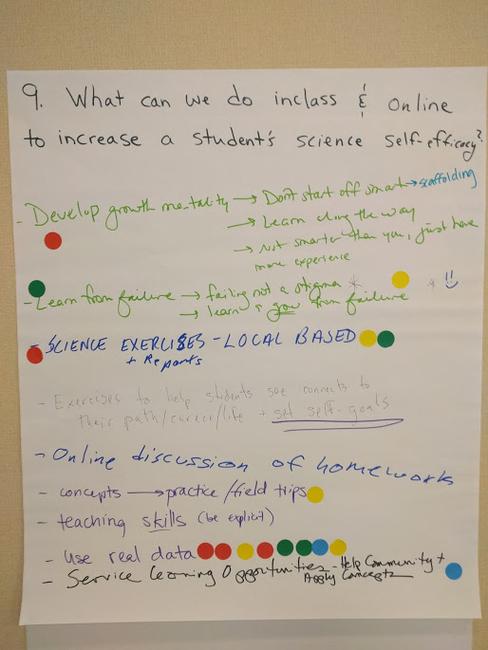 9. What can we do inclass & online
to increase a student's science self-efficacy?
- Develop growth mentality → Don't start off smart → scaffolding
→ Learn along the way
→ Not smarter than you, just have
more experience
- Learn from failure → failing not a stigma
→ learn & grow from failure
- SCIENCE EXERCISES - LOCAL BASED
+ Reports
- Exercises to help students see connects to
their path/career/life + set self-goals
- Online discussion of homework
- concepts → practice/field trips
- teaching skills (be explicit)
- use real data
- Service learning Opportunities - Help Community +
Apply Concepts